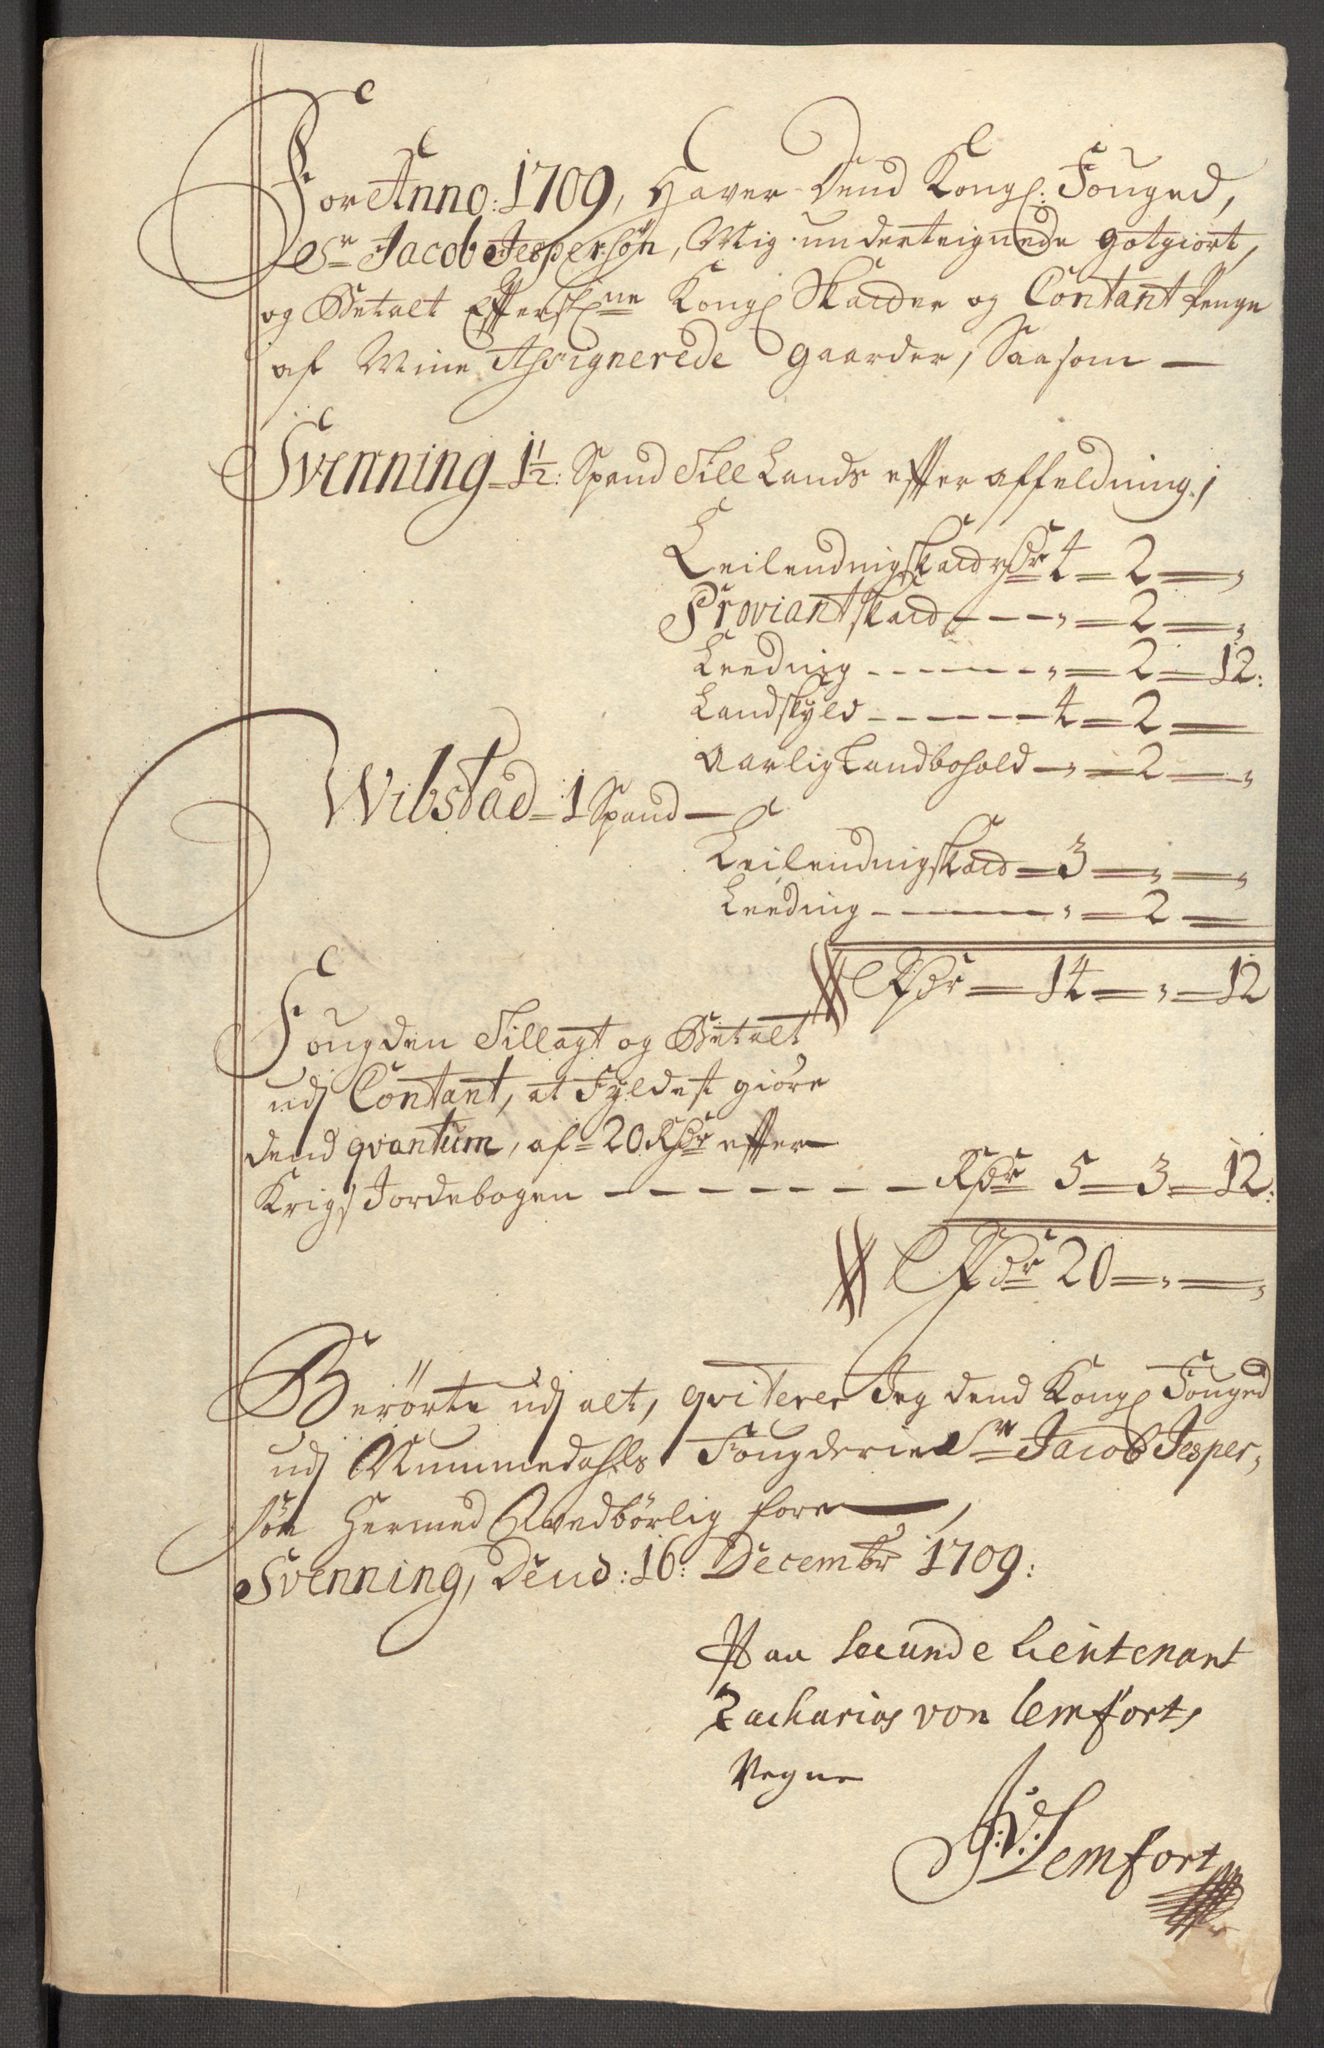 For Anno: 1709, Haver Dend Kongl: Fouged,
Sr Jacob Jespersøn, Mig underteignede gotgiort,
og Betalt Effterskne Kongl Skatder og Contant Penge
af Mine Assignerede gaarder, Saasom —
Svenning - 1½: Spand Till Lands effter affeldning,
Leilendnigskatd Rdr 4 = 2 — „
Proviantskatd - - - „ = 2 — „
Leednig - - - - - „ = 2 = 12:
Landskyld - - - - - 4 = 2 —
Aarlig Landbohold - „ = 2 — „
Wibstad = 1 Spand —
Leilendnigskatd = 3 = „ — „
Leeding - - - - „ = 2 —
Rdr = 14 = „ = 12
Fougden Tillagt og Betalt
udj Contant, at Fyldest giöre
dend qvantum, af = 20 Rdr effter
Krigs Jordebogen - - - - - - - Rdr 5 = 3 = 12:
Rdr 20 = „ — „
Berörte udj alt, qviterer Jeg dend Kongl Fouged
udj Nummedahls Fougderie Sr Jacob Jesper,
søn Hermed Qvedbörlig fore —,
Svenning, Dend: 16: Decembr 1709:
Paa Secunde Lieutenant
Zacharias von Lemforts
Vegne
J: V: Lemfort